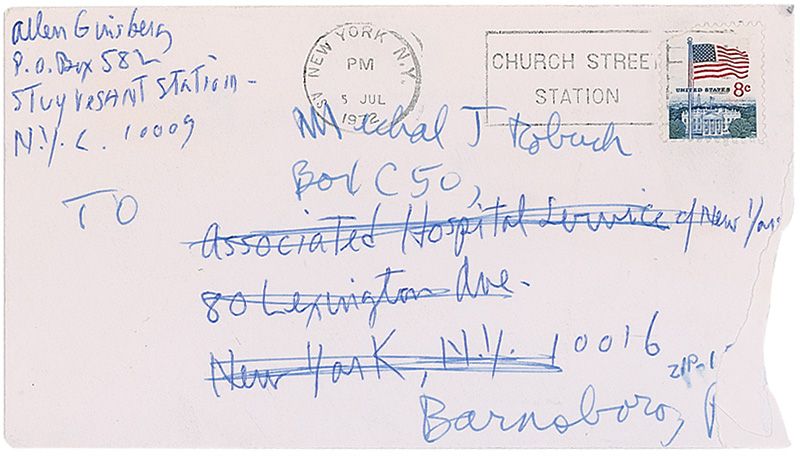 Allen Ginsberg
P.O. Box 582
Stuyvesant Station -
N.Y.C. 10009
NEW YORK, N.Y.
PM
5 JUL
1972
CHURCH STREET
STATION
UNITED STATES 8c
TO
Michal J Kobuch
Box C 50,
Associated Hospital Service of New York
80 Lexington Ave.
New York, N.Y. 10016
Barnsboro,